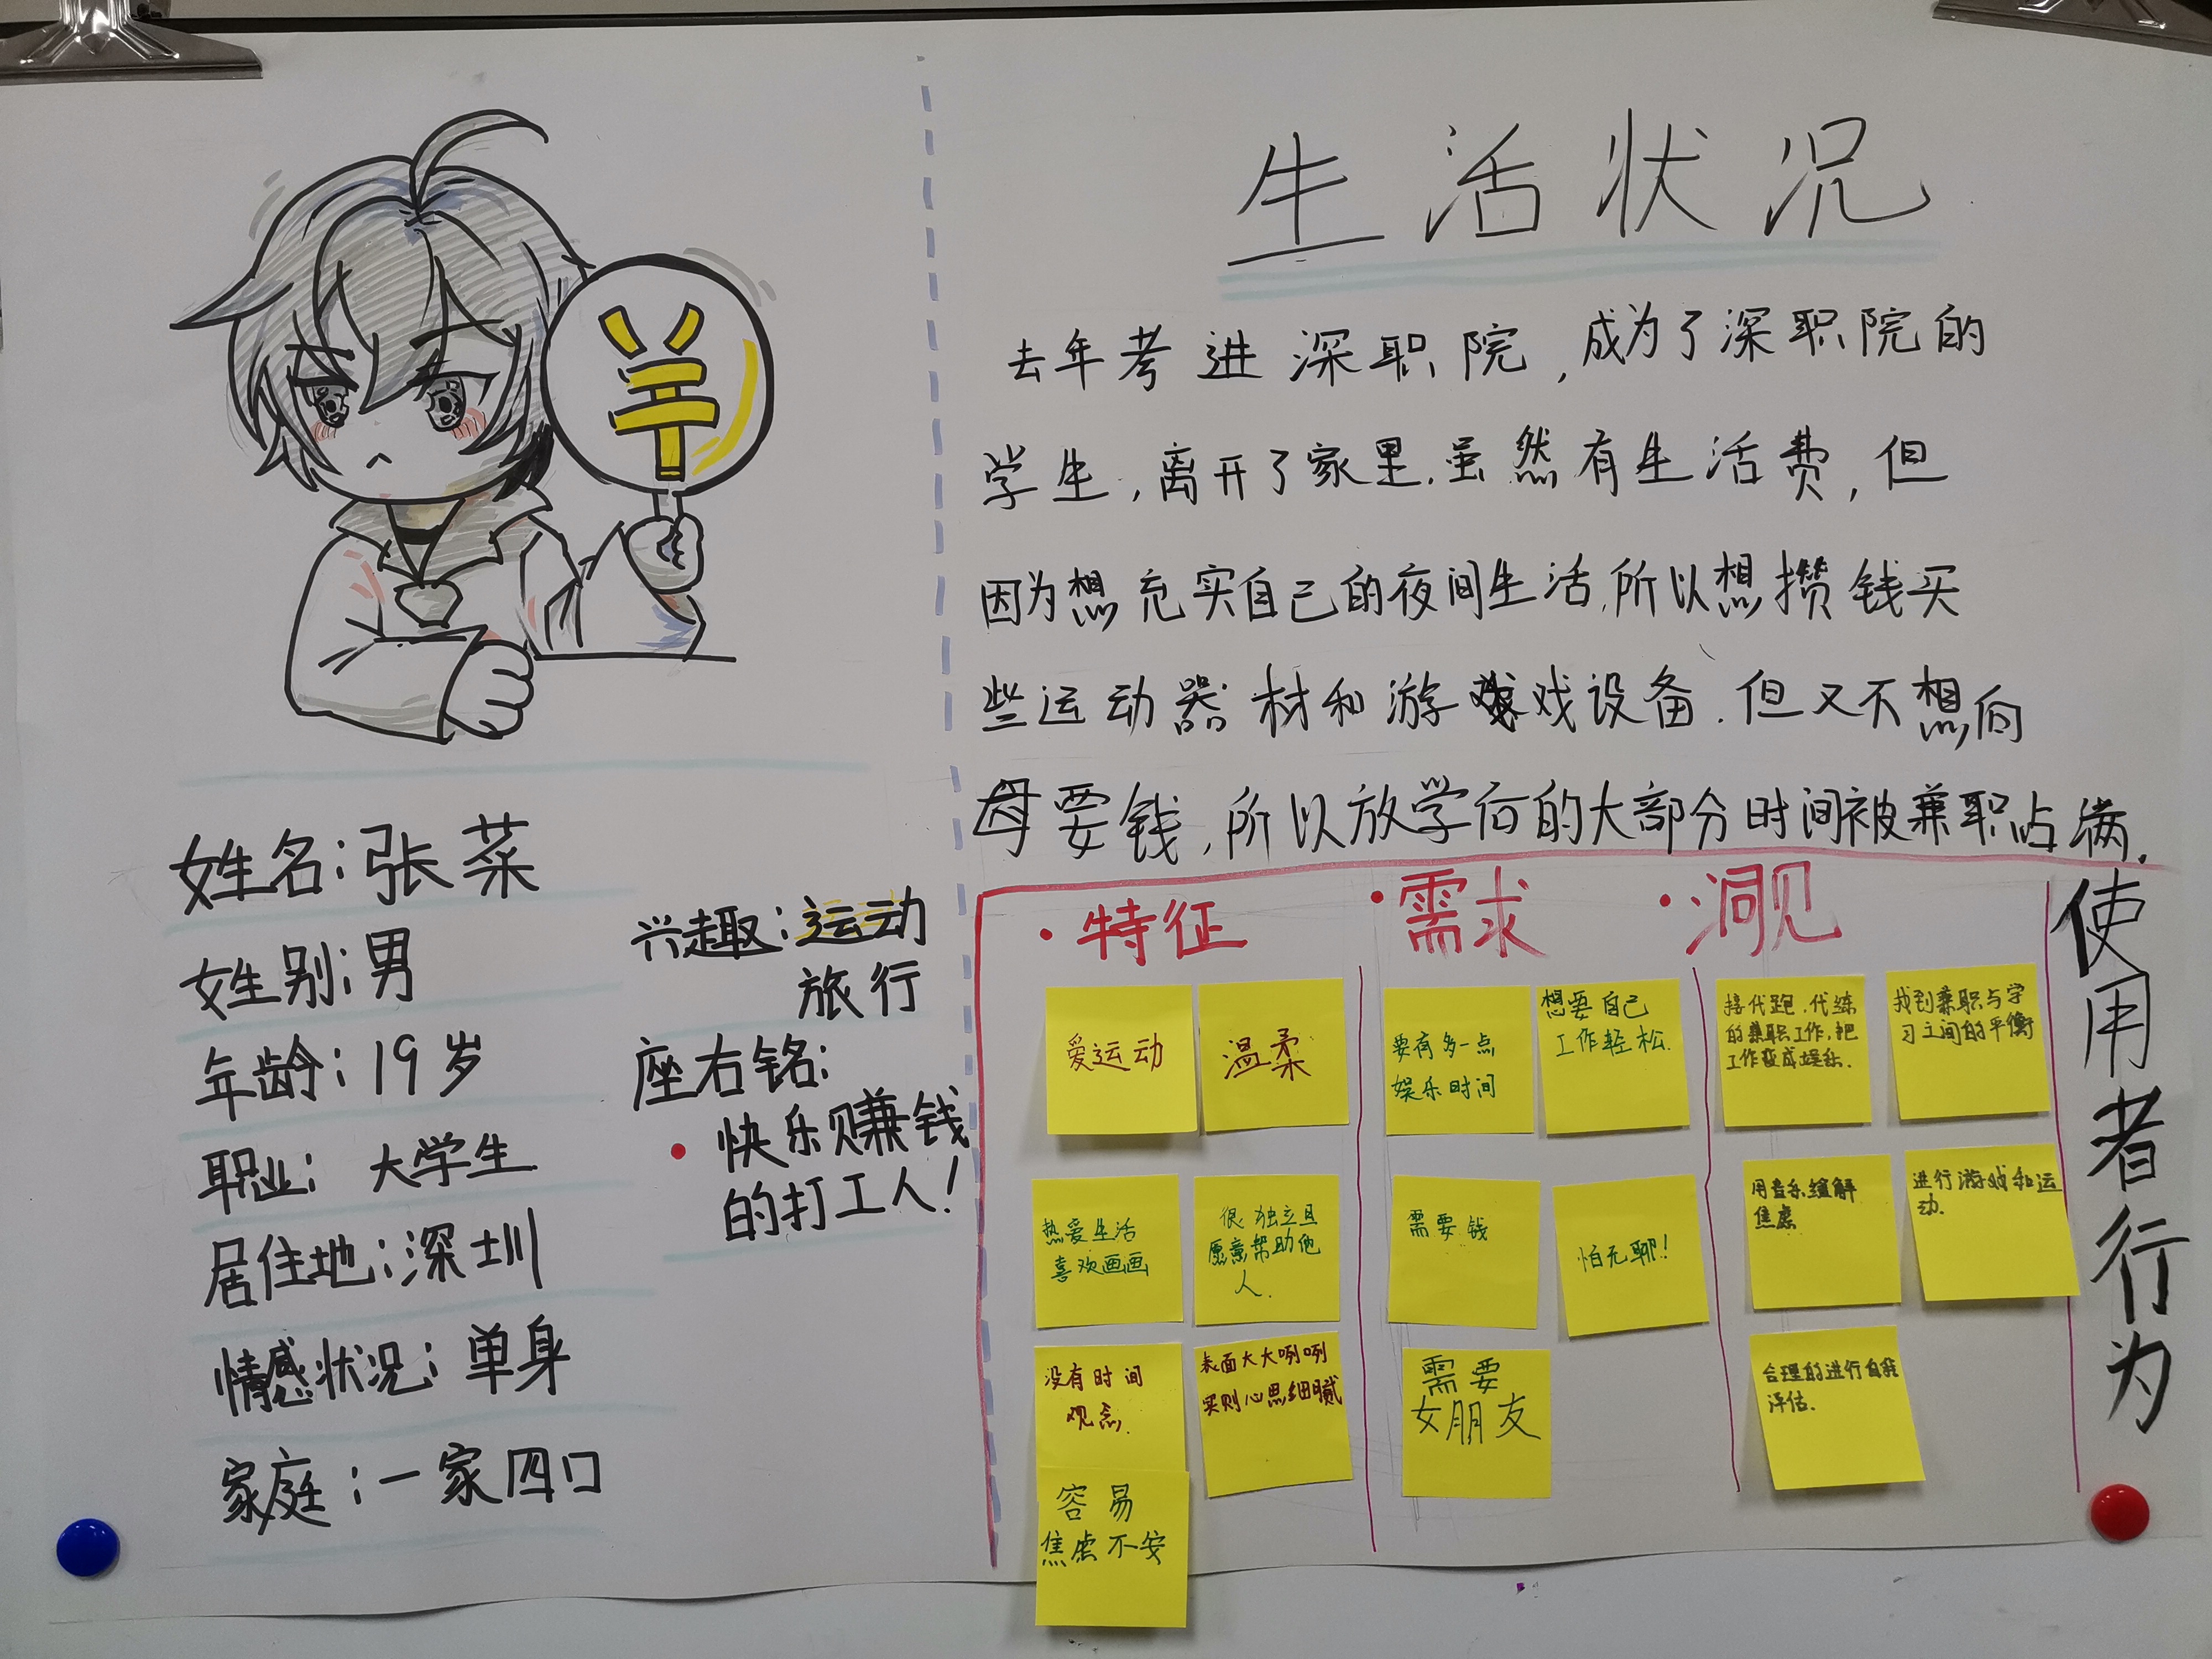 生活状况
去年考进深职院,成为了深职院的
学生,离开了家里.虽然有生活费,但
因为想充实自己的夜间生活,所以想攒钱买
些运动器材和游戏设备.但又不想向
母要钱,所以放学后的大部分时间被兼职占满.
¥
姓名:张菜
姓别:男
年龄:19岁
职业:大学生
居住地:深圳
情感状况:单身
家庭:一家四口
兴趣:运动
旅行
座右铭:
•快乐赚钱
的打工人!
使用者行为
•特征
爱运动
温柔
热爱生活
喜欢画画
很独立且
愿意帮助他
人.
没有时间
观念.
表面大大咧咧
实则心思细腻
容易
焦虑不安
•需求
要有多一点
娱乐时间
想要自己
工作轻松.
需要钱
怕无聊!
需要
女朋友
•洞见
接代跑,代练
的兼职工作,把
工作变成娱乐.
找到兼职与学
习之间的平衡
用音乐缓解
焦虑
进行游戏和运
动.
合理的进行自我
评估.